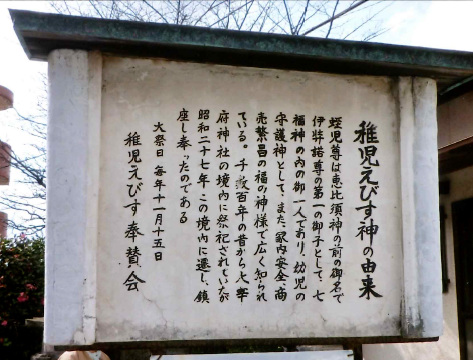 稚児えびす神の由来
蛭児尊は恵比須神の前の御名で
伊弉諾尊の第一の御子として、七
福神の内の御一人であり、幼児の
守護神として、また、家内安全、商
売繁昌の福の神様で広く知られ
ている。千数百年の昔から大宰
府神社の境内に祭祀されていたが
昭和二十七年この境内に遷し、鎮
座し奉ったのである
大祭日 毎年十一月十五日
稚児えびす奉賛会